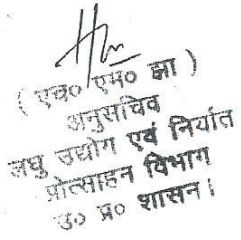 ( एच० एम० झा )
अनुसचिव
लघु उद्योग एवं निर्यात
प्रोत्साहन विभाग
उ० प्र० शासन।